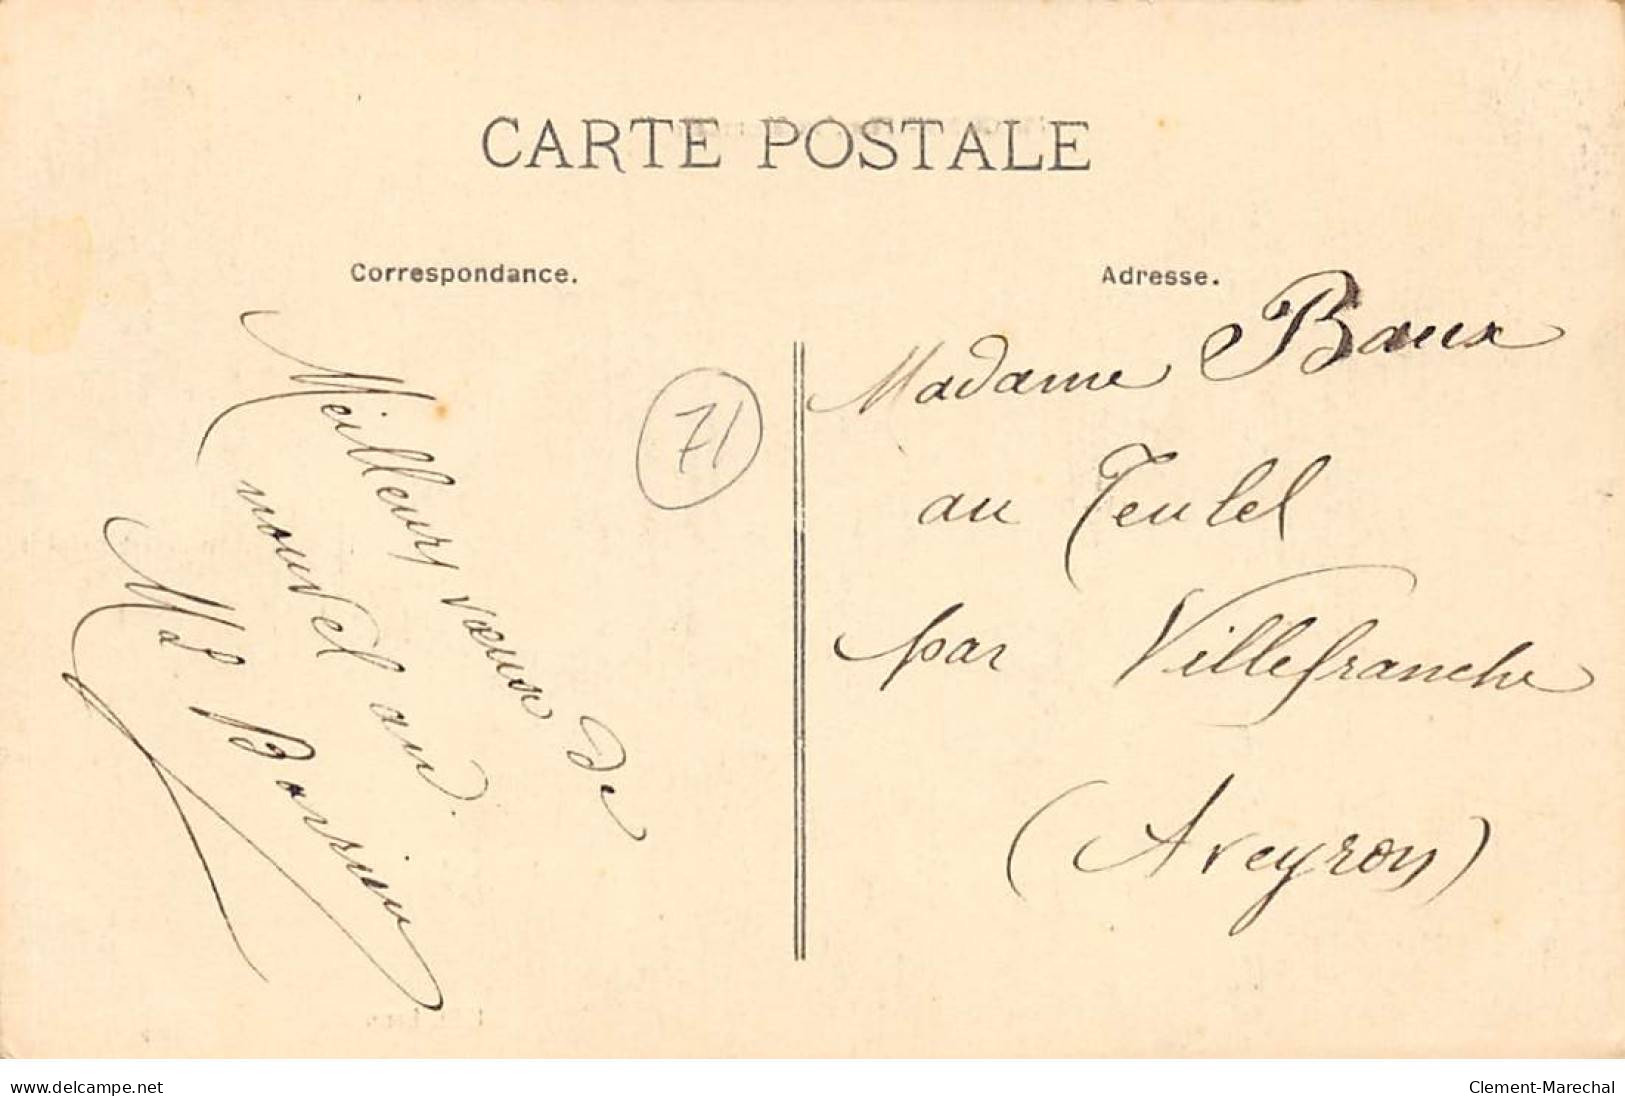 CARTE POSTALE
Correspondance.
Adresse.
Meilleurs vœux de
nouvel an.
71
Madame Baux
au Teulel
par Villefranche
(Aveyron)
www.delcampe.net
Clement-Marechal